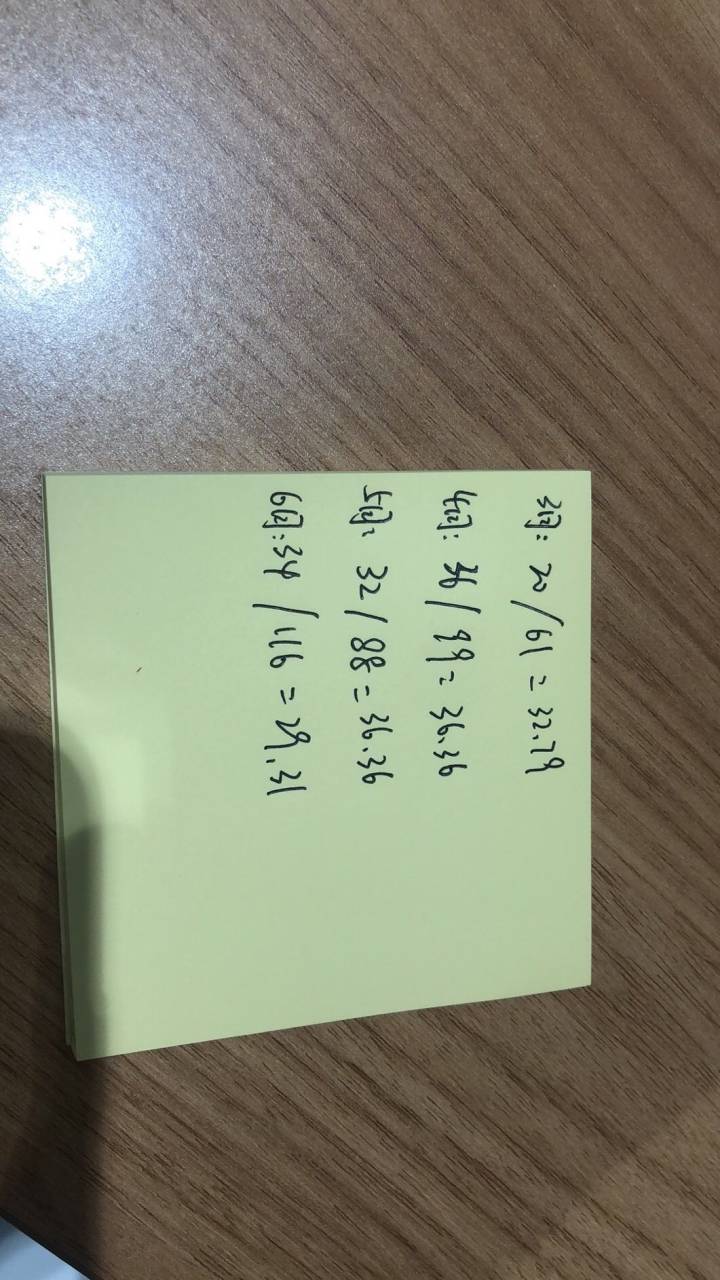 3회: 20/61 = 32.79
4회: 36/99 = 36.36
5회: 32/88 = 36.36
6회: 34/116 = 29.31